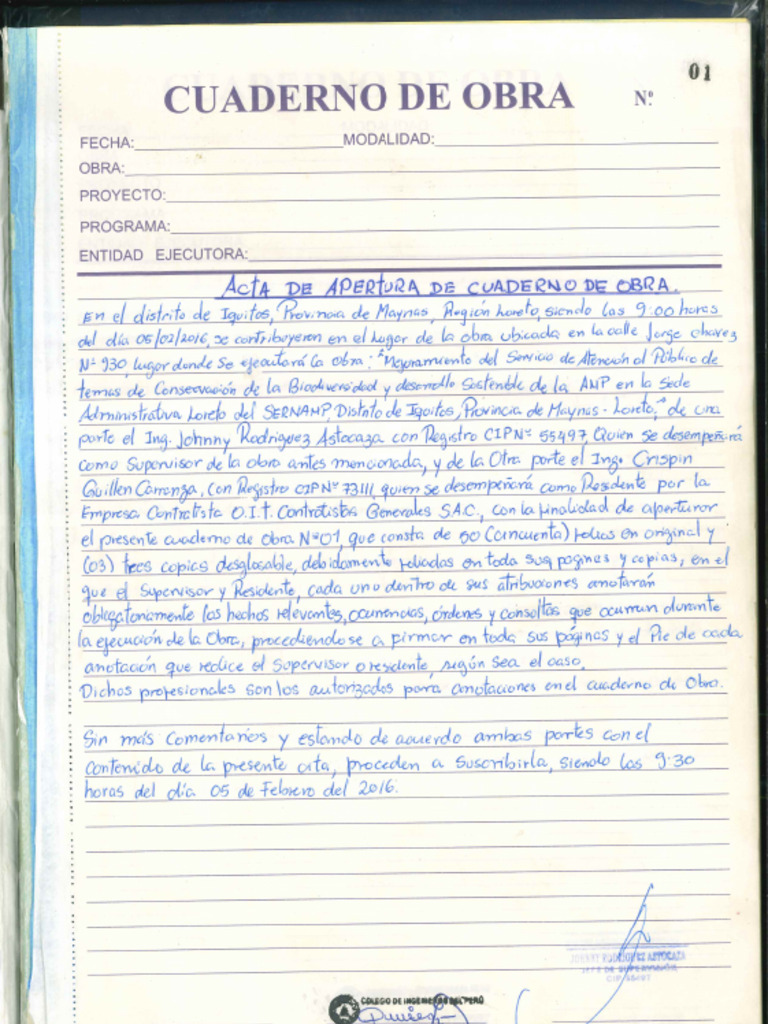 01
CUADERNO DE OBRA Nº
FECHA: MODALIDAD:
OBRA:
PROYECTO:
PROGRAMA:
ENTIDAD EJECUTORA:
ACTA DE APERTURA DE CUADERNO DE OBRA.
En el distrito de Iquitos, Provincia de Maynas, Región Loreto, siendo las 9:00 horas
del día 05/02/2016, se contribuyeron en el lugar de la obra ubicada en la calle Jorge chavez
Nº 930, lugar donde se ejecutará la obra: "Mejoramiento del Servicio de Atención al Público de
temas de Conservación de la Biodiversidad y desarrollo Sostenible de la ANP en la Sede
Administrativa Loreto del SERNANP, Distrito de Iquitos, Provincia de Maynas - Loreto," de una
parte el Ing. Johnny Rodriguez Astocaza con Registro CIP Nº 55497, Quien se desempeñará
como Supervisor de la obra antes mencionada, y de la Otra parte el Ing. Crispin
Guillen Carranza, con Registro CIP Nº 73111, quien se desempeñará como Residente por la
Empresa Contratista O.I.T. Contratistas Generales S.A.C., con la finalidad de aperturar
el presente cuaderno de obra Nº01, que consta de 50 (cincuenta) folios en original y
(03) tres copias desglosable, debidamente foliadas en toda sus paginas y copias, en el
que el Supervisor y Residente, cada uno dentro de sus atribuciones anotarán
obligatoriamente los hechos relevantes, ocurrencias, órdenes y consultas que ocurran durante
la ejecución de la Obra, procediendose a firmar en toda sus páginas y el Pie de cada
anotación que realice el Supervisor o residente, según sea el caso.
Dichos profesionales son los autorizados para anotaciones en el cuaderno de Obra.
Sin más comentarios y estando de acuerdo ambas partes con el
contenido de la presente acta, proceden a suscribirla, siendo las 9:30
horas del día 05 de Febrero del 2016.
JOHNNY RODRIGUEZ ASTOCAZA
JEFE DE SUPERVISIÓN
CIP 55497
COLEGIO DE INGENIEROS DEL PERÚ